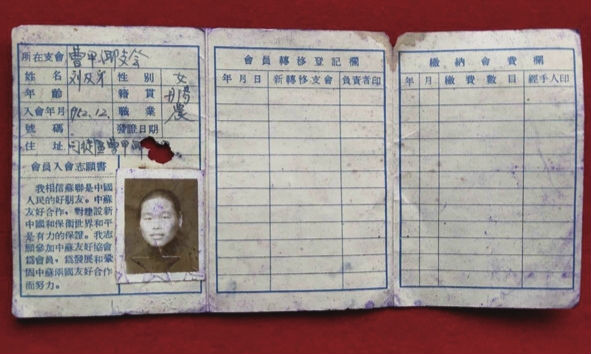 所在支會 曹甲 支会
姓名 刘 性別 女
年齡 籍貫 丹陽
入會年月 1952.12. 職業 農
號碼 發證日期
住址 司徒區曹甲
會員入會志願書
我相信蘇聯是中國
人民的好朋友。中蘇
友好合作，對建設新
中國和保衛世界和平
是有力的保證。我志
願參加中蘇友好協會
爲會員，爲發展和鞏
固中蘇兩國友好合作
而努力。
會員轉移登記欄
年月日 新轉移支會 負責者印
繳納會費欄
年 月 繳費數目 經手人印